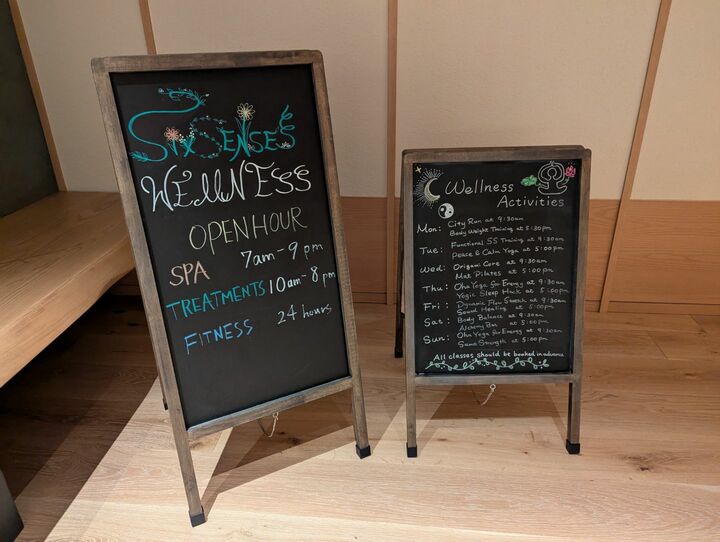 Six Senses
WELLNESS
OPEN HOUR
SPA 7am - 9 pm
TREATMENTS 10am - 8 pm
FITNESS 24 hours
Wellness
Activities
Mon: City Run at 9:30am
Body Weight Training at 5:30pm
Tue: Functional SS Training at 9:30am
Peace & Calm Yoga at 5:00pm
Wed: Origami Core at 9:30am
Mat Pilates at 5:00pm
Thu: Oha Yoga for Energy at 9:30am
Yogic Sleep Hack at 5:00pm
Fri: Dynamic Flow Stretch at 9:30am
Sound Healing at 5:00pm
Sat: Body Balance at 9:30am
Alchemy Bar at 5:00pm
Sun: Oha Yoga for Energy at 9:30am
Same Strength at 5:00pm
All classes should be booked in advance